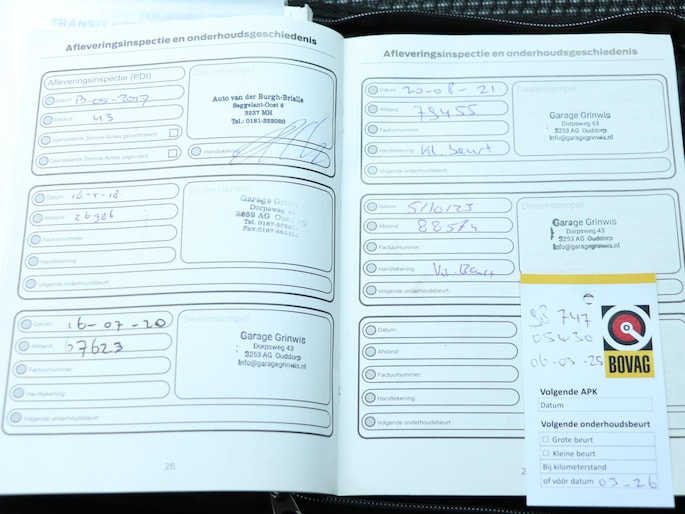 TOURNE
TRANSIT CO
Afleveringsinspectie en onderhoudsgeschiedenis
Afleveringsinspectie (PDI)
Datum:
Afstand: 43
Openstaande Service-Acties gecontroleerd:
Openstaande Service-Acties uitgevoerd:
Dealerstempel
Auto van der Burgh-Brielle
Seggelant-Oost 8
3237 MH
Tel.: 0181-322020
Handtekening:
Datum:
Afstand: 26986
Factuurnummer:
Handtekening:
Volgende onderhoudsbeurt:
Dealerstempel
Garage Grinwis
Dorpsweg 43
3253 AG Ouddorp
Tel. 0187-
Fax. 0187-
Datum: 16-07-20
Afstand: 67623
Factuurnummer:
Handtekening:
Volgende onderhoudsbeurt:
Dealerstempel
Garage Grinwis
Dorpsweg 43
3253 AG Ouddorp
info@garagegrinwis.nl
26
Afleveringsinspectie en onderhoudsgeschiedenis
Datum: 20-08-21
Afstand: 79455
Factuurnummer:
Handtekening: Kl. beurt
Volgende onderhoudsbeurt:
Dealerstempel
Garage Grinwis
Dorpsweg 43
3253 AG Ouddorp
info@garagegrinwis.nl
Datum: 5/10/23
Afstand: 88574
Factuurnummer:
Handtekening: Beurt
Volgende onderhoudsbeurt:
Dealerstempel
Garage Grinwis
Dorpsweg 43
3253 AG Ouddorp
info@garagegrinwis.nl
Datum:
Afstand:
Factuurnummer:
Handtekening:
Volgende onderhoudsbeurt:
2
747
05W30
06-03-25
BOVAG
Volgende APK
Datum
Volgende onderhoudsbeurt:
Grote beurt
Kleine beurt
Bij kilometerstand
of vóór datum 03-26